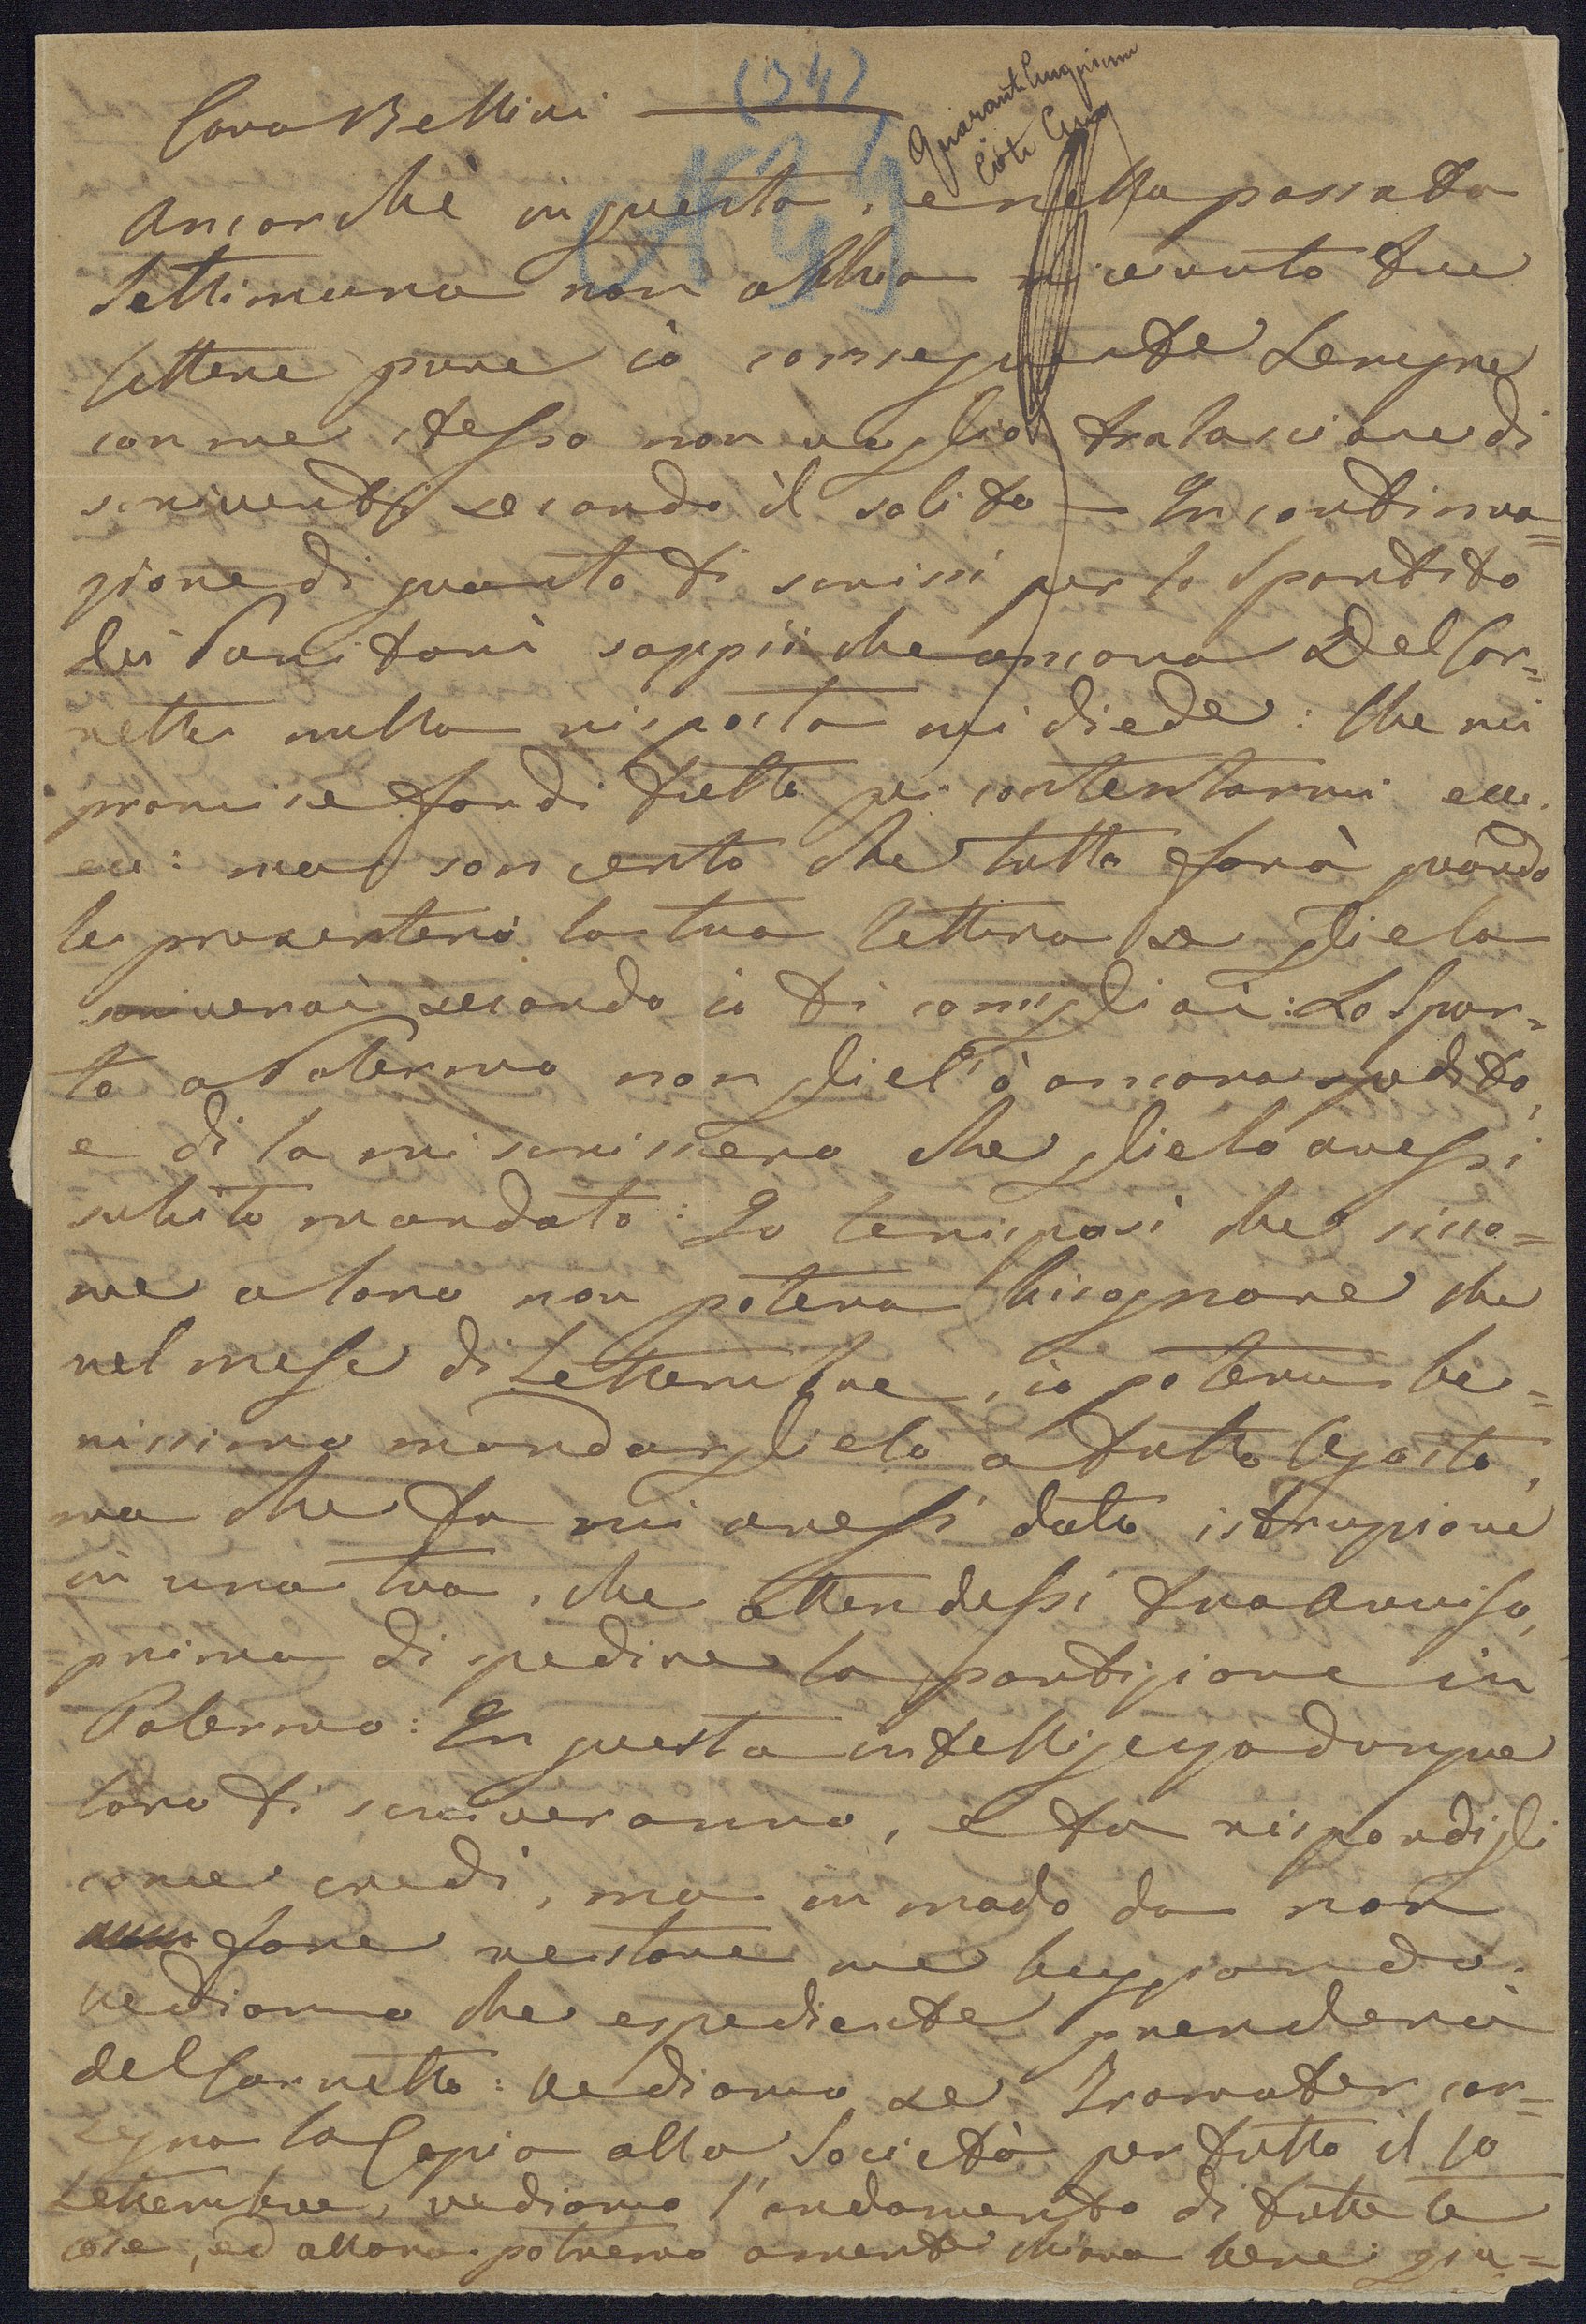 (34)
Caro Bellini
Ancorchè in questa, e nella passata
Settimana non abbia ricevuto tue
lettere pure io conseguente sempre
con me stesso non voglio tralasciare di
scriverti secondo il solito — In continua=
zione di quanto ti scrissi per lo Spartito
dei Puritani sappii che ancora Del Cor=
netto nulla risposta mi diede: Che mi
promise far di tutto per contentarmi ecc.
ecc: ma son certo che tutto farà quando
le presenterò la tua lettera se gliela
scriverai secondo io ti consigliai: Lo Spar=
to a Palermo non gliel'ò ancora spedito,
e di la mi scrissero che glielo avessi
subito mandato: Io le risposi che sicco=
me a loro non poteva bisognare che
nel mese di Settembre, io poteva be=
nissimo mandarglielo a tutto Agosto,
ma che tu mi avessi dato istruzione
in una tua, che attendessi tuo avviso,
prima di spedire la partizione in
Palermo: In questa intelligenza dunque
loro ti scriveranno, e tu rispondigli
come credi, ma in modo da non
fare restare me buggiardo.
vediamo che espediente prenderà
del Cornetto: vediamo se Tramater con=
segna la Copia alla Società per tutto il 10
Settembre, vediamo l'andamento di tutte le
cose, ed allora potremo a mente chiara bene giu=